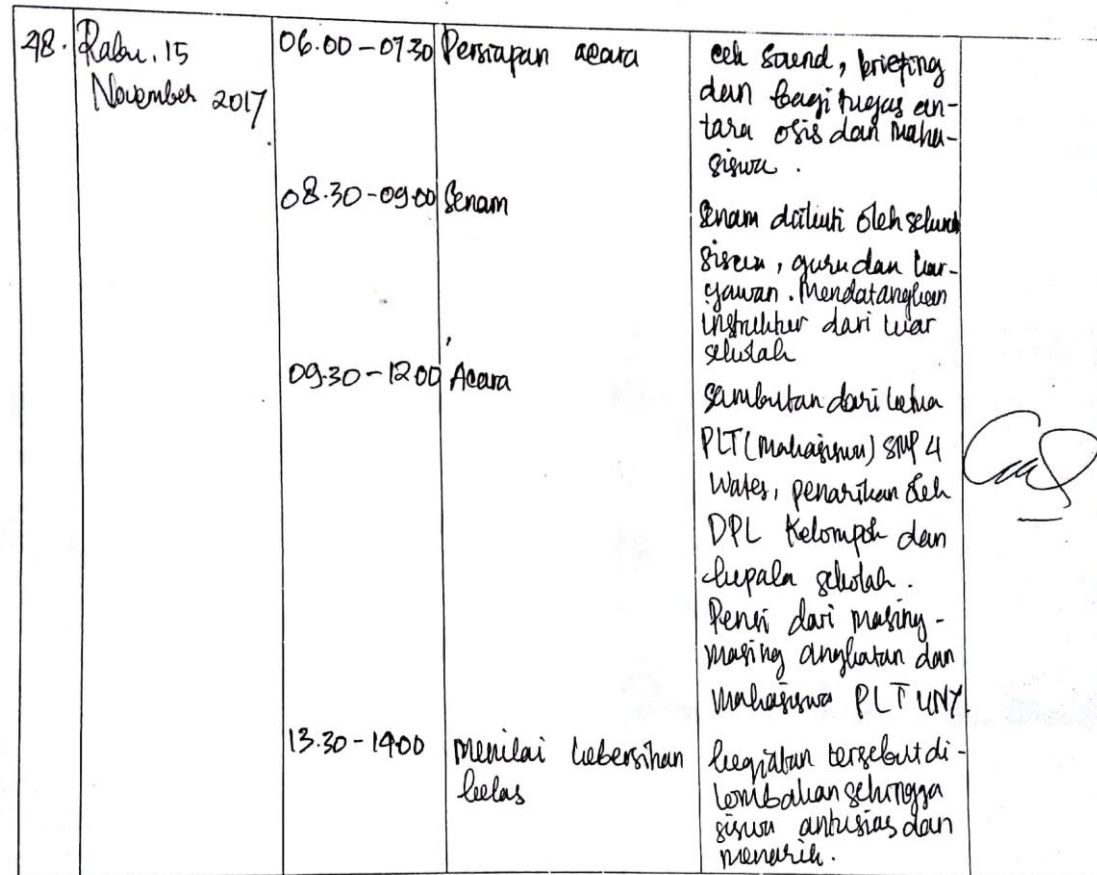 48.
Rabu, 15
November 2017
06.00 - 07.30
Persiapan acara
cek sound, briefing
dan bagi tugas an-
tara osis dan maha-
siswa.
08.30 - 09.00
Senam
Senam diikuti oleh seluruh
siswa, guru dan kar-
yawan. Mendatangkan
instruktur dari luar
sekolah
09.30 - 12.00
Acara
Sambutan dari ketua
PLT (Mahasiswa) SMP 4
Wates, penarikan oleh
DPL Kelompok dan
kepala sekolah.
Pensi dari masing-
masing angkatan dan
Mahasiswa PLT UNY.
13.30 - 14.00
Menilai kebersihan
kelas
kegiatan tersebut di-
lombakan sehingga
siswa antusias dan
menarik.